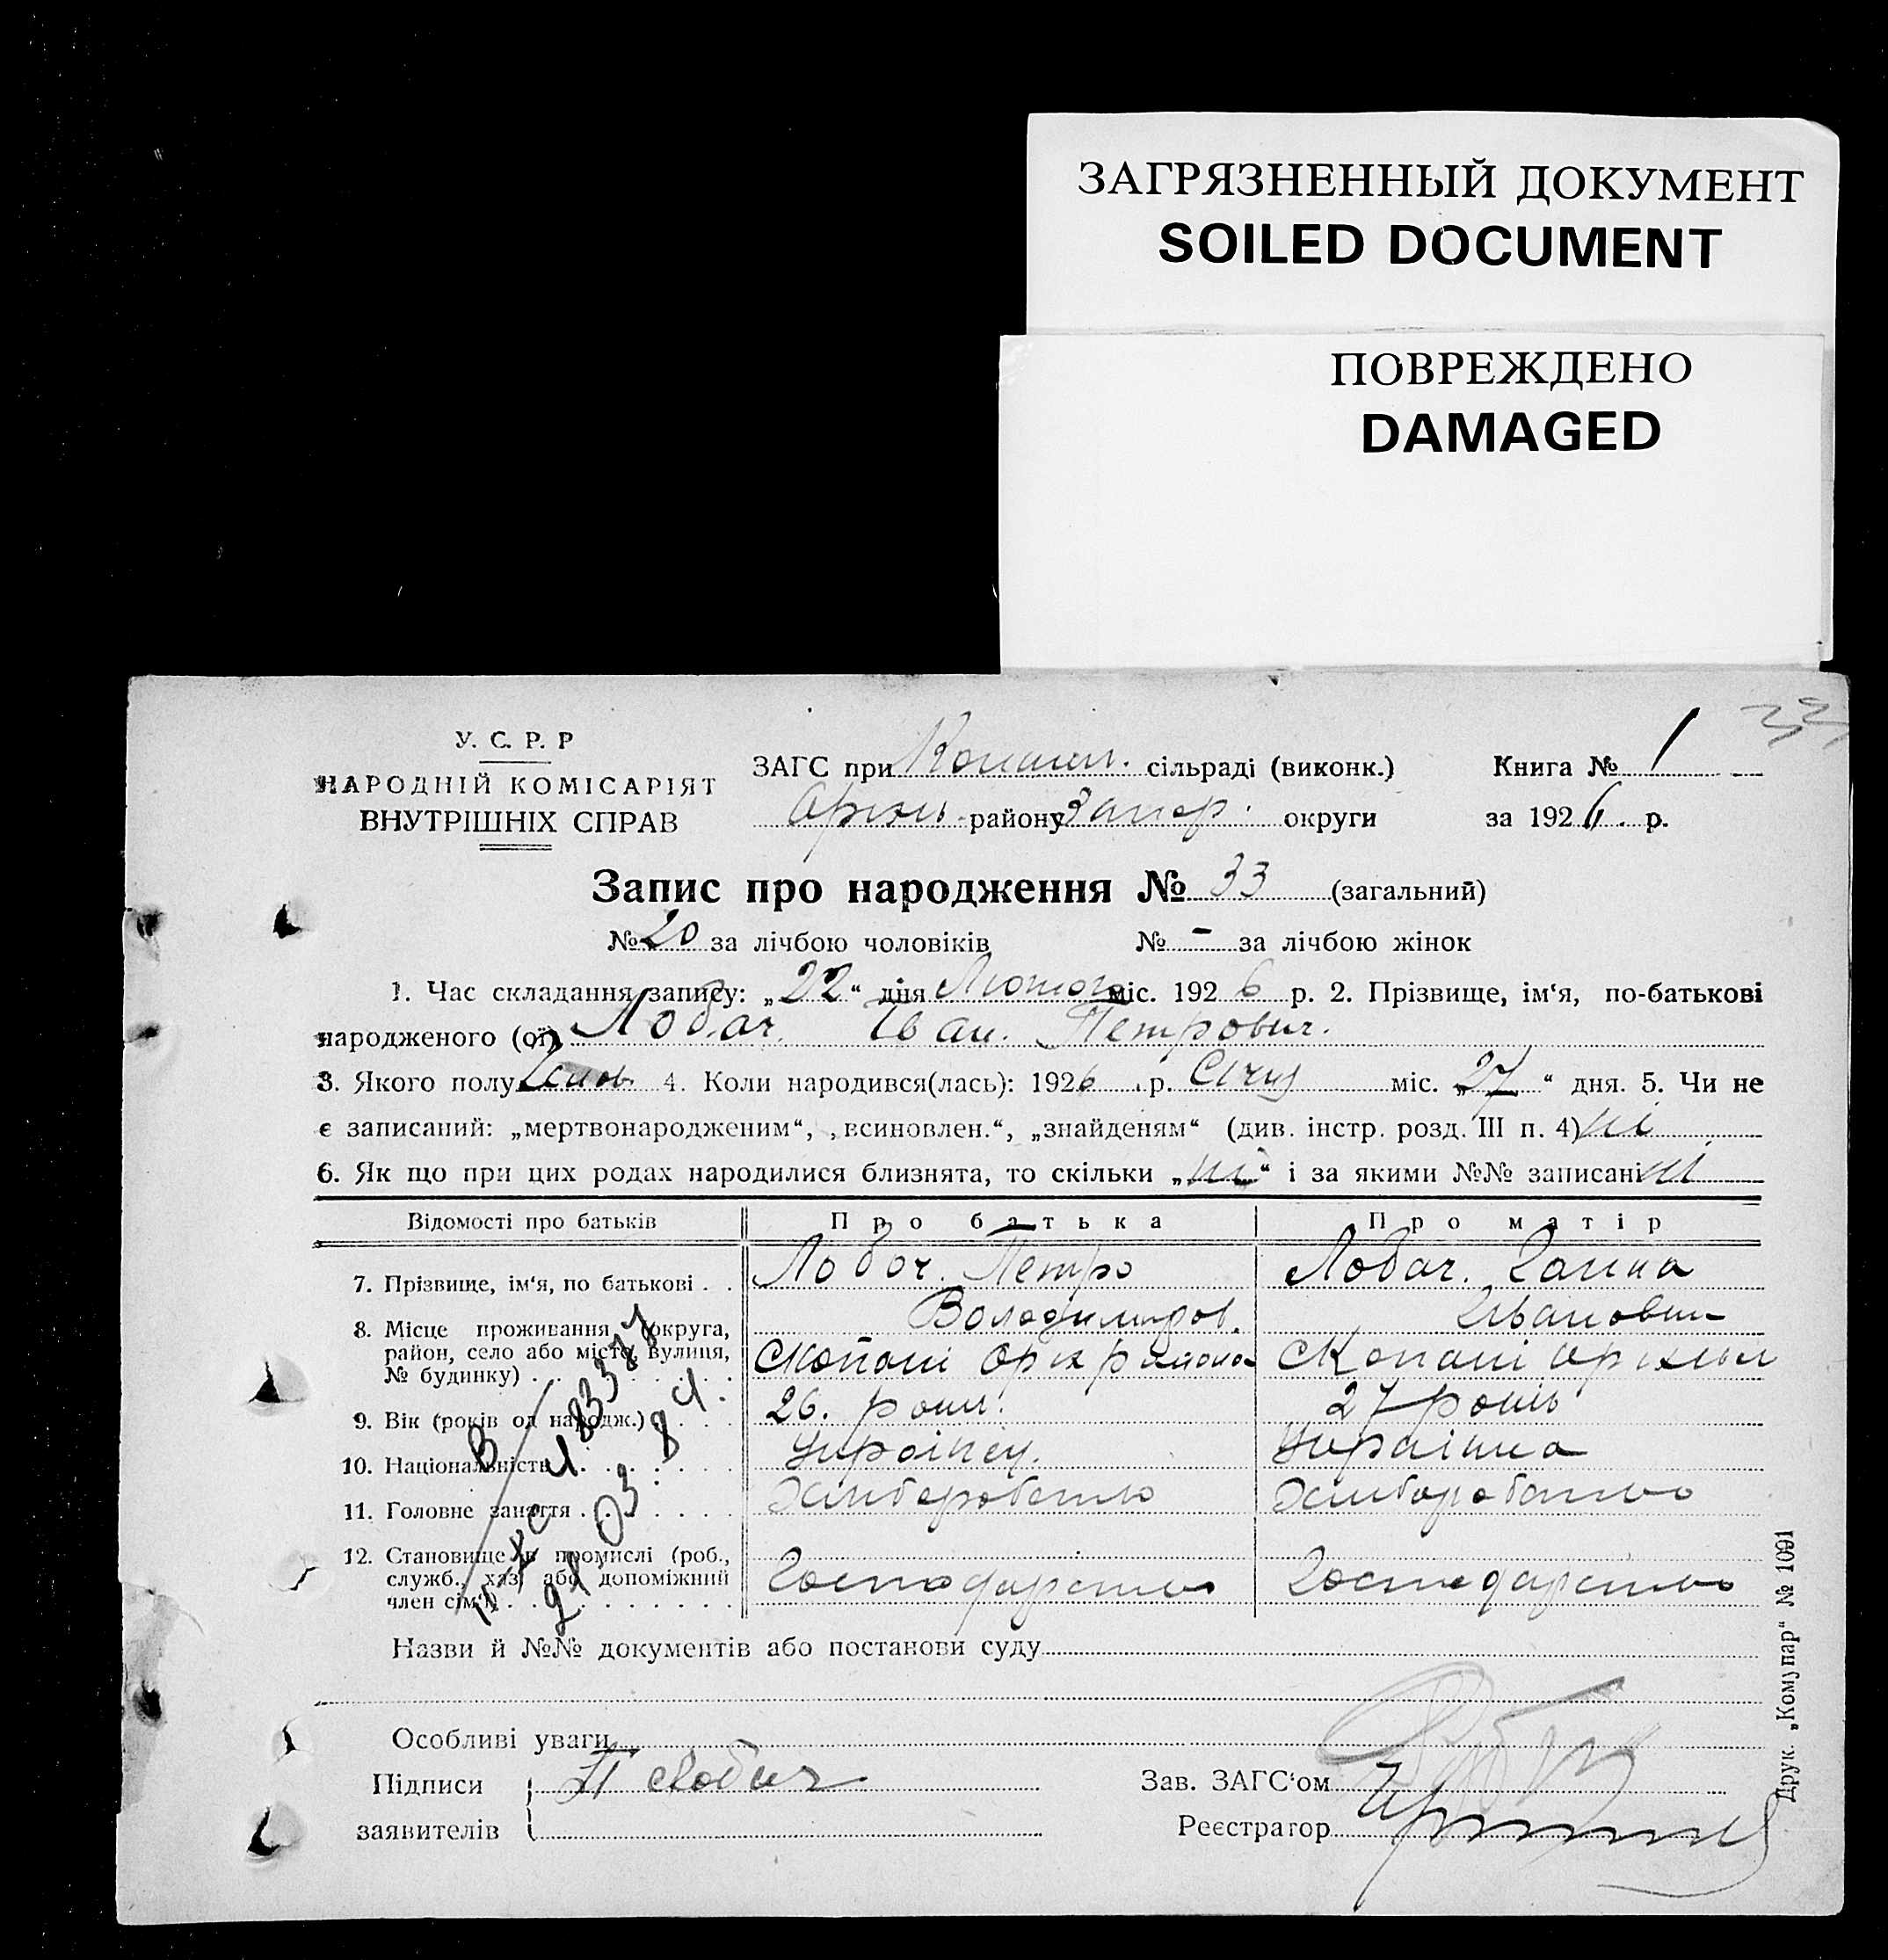 ЗАГРЯЗНЕННЫЙ ДОКУМЕНТ
SOILED DOCUMENT
ПОВРЕЖДЕНО
DAMAGED
У. С. Р. Р
НАРОДНІЙ КОМІСАРІЯТ
ВНУТРІШНІХ СПРАВ
ЗАГС при сільраді (виконк.)
Книга № 1
району Запор. округи
за 1926 р.
Запис про народження № 33 (загальний)
№ 20 за лічбою чоловіків № - за лічбою жінок
1. Час складання запису: „22“ дня Лютого міс. 1926 р. 2. Прізвище, ім‘я, по-батькові
народженого (ої) Лобач. Іван. Петрович.
3. Якого полу 4. Коли народився(лась): 1926 р. Січня міс. „27“ дня. 5. Чи не
є записаний: „мертвонародженим“, „всиновлен.“, „знайденям“ (див. інстр. розд. III п. 4) ні
6. Як що при цих родах народилися близнята, то скільки „ні“ і за якими №№ записані ні
Відомості про батьків Про батька Про матір
7. Прізвище, ім‘я, по батькові . . Лобач. Петро Лобач. Ганна
Володимиров. Ивановна
8. Місце проживання (округа,
район, село або місто, вулиця,
№ будинку) . . . . . . . . . с Копані Оріх района с Копані
9. Вік (років од народж.) . . . 26. 27 років
10. Національність . . . . . . . Українец. Українка
11. Головне заняття . . . . . . . Хліборобство Хліборобство
12. Становище в промислі (роб.,
служб., хаз. або допоміжний
член сім‘ї) . . . . . . . . . . Господарство Господарство
Назви й №№ документів або постанови суду
Особливі уваги
Підписи П Лобач
заявителів
Зав. ЗАГС‘ом
Реєстратор
Друк. „Комупар“ № 1091